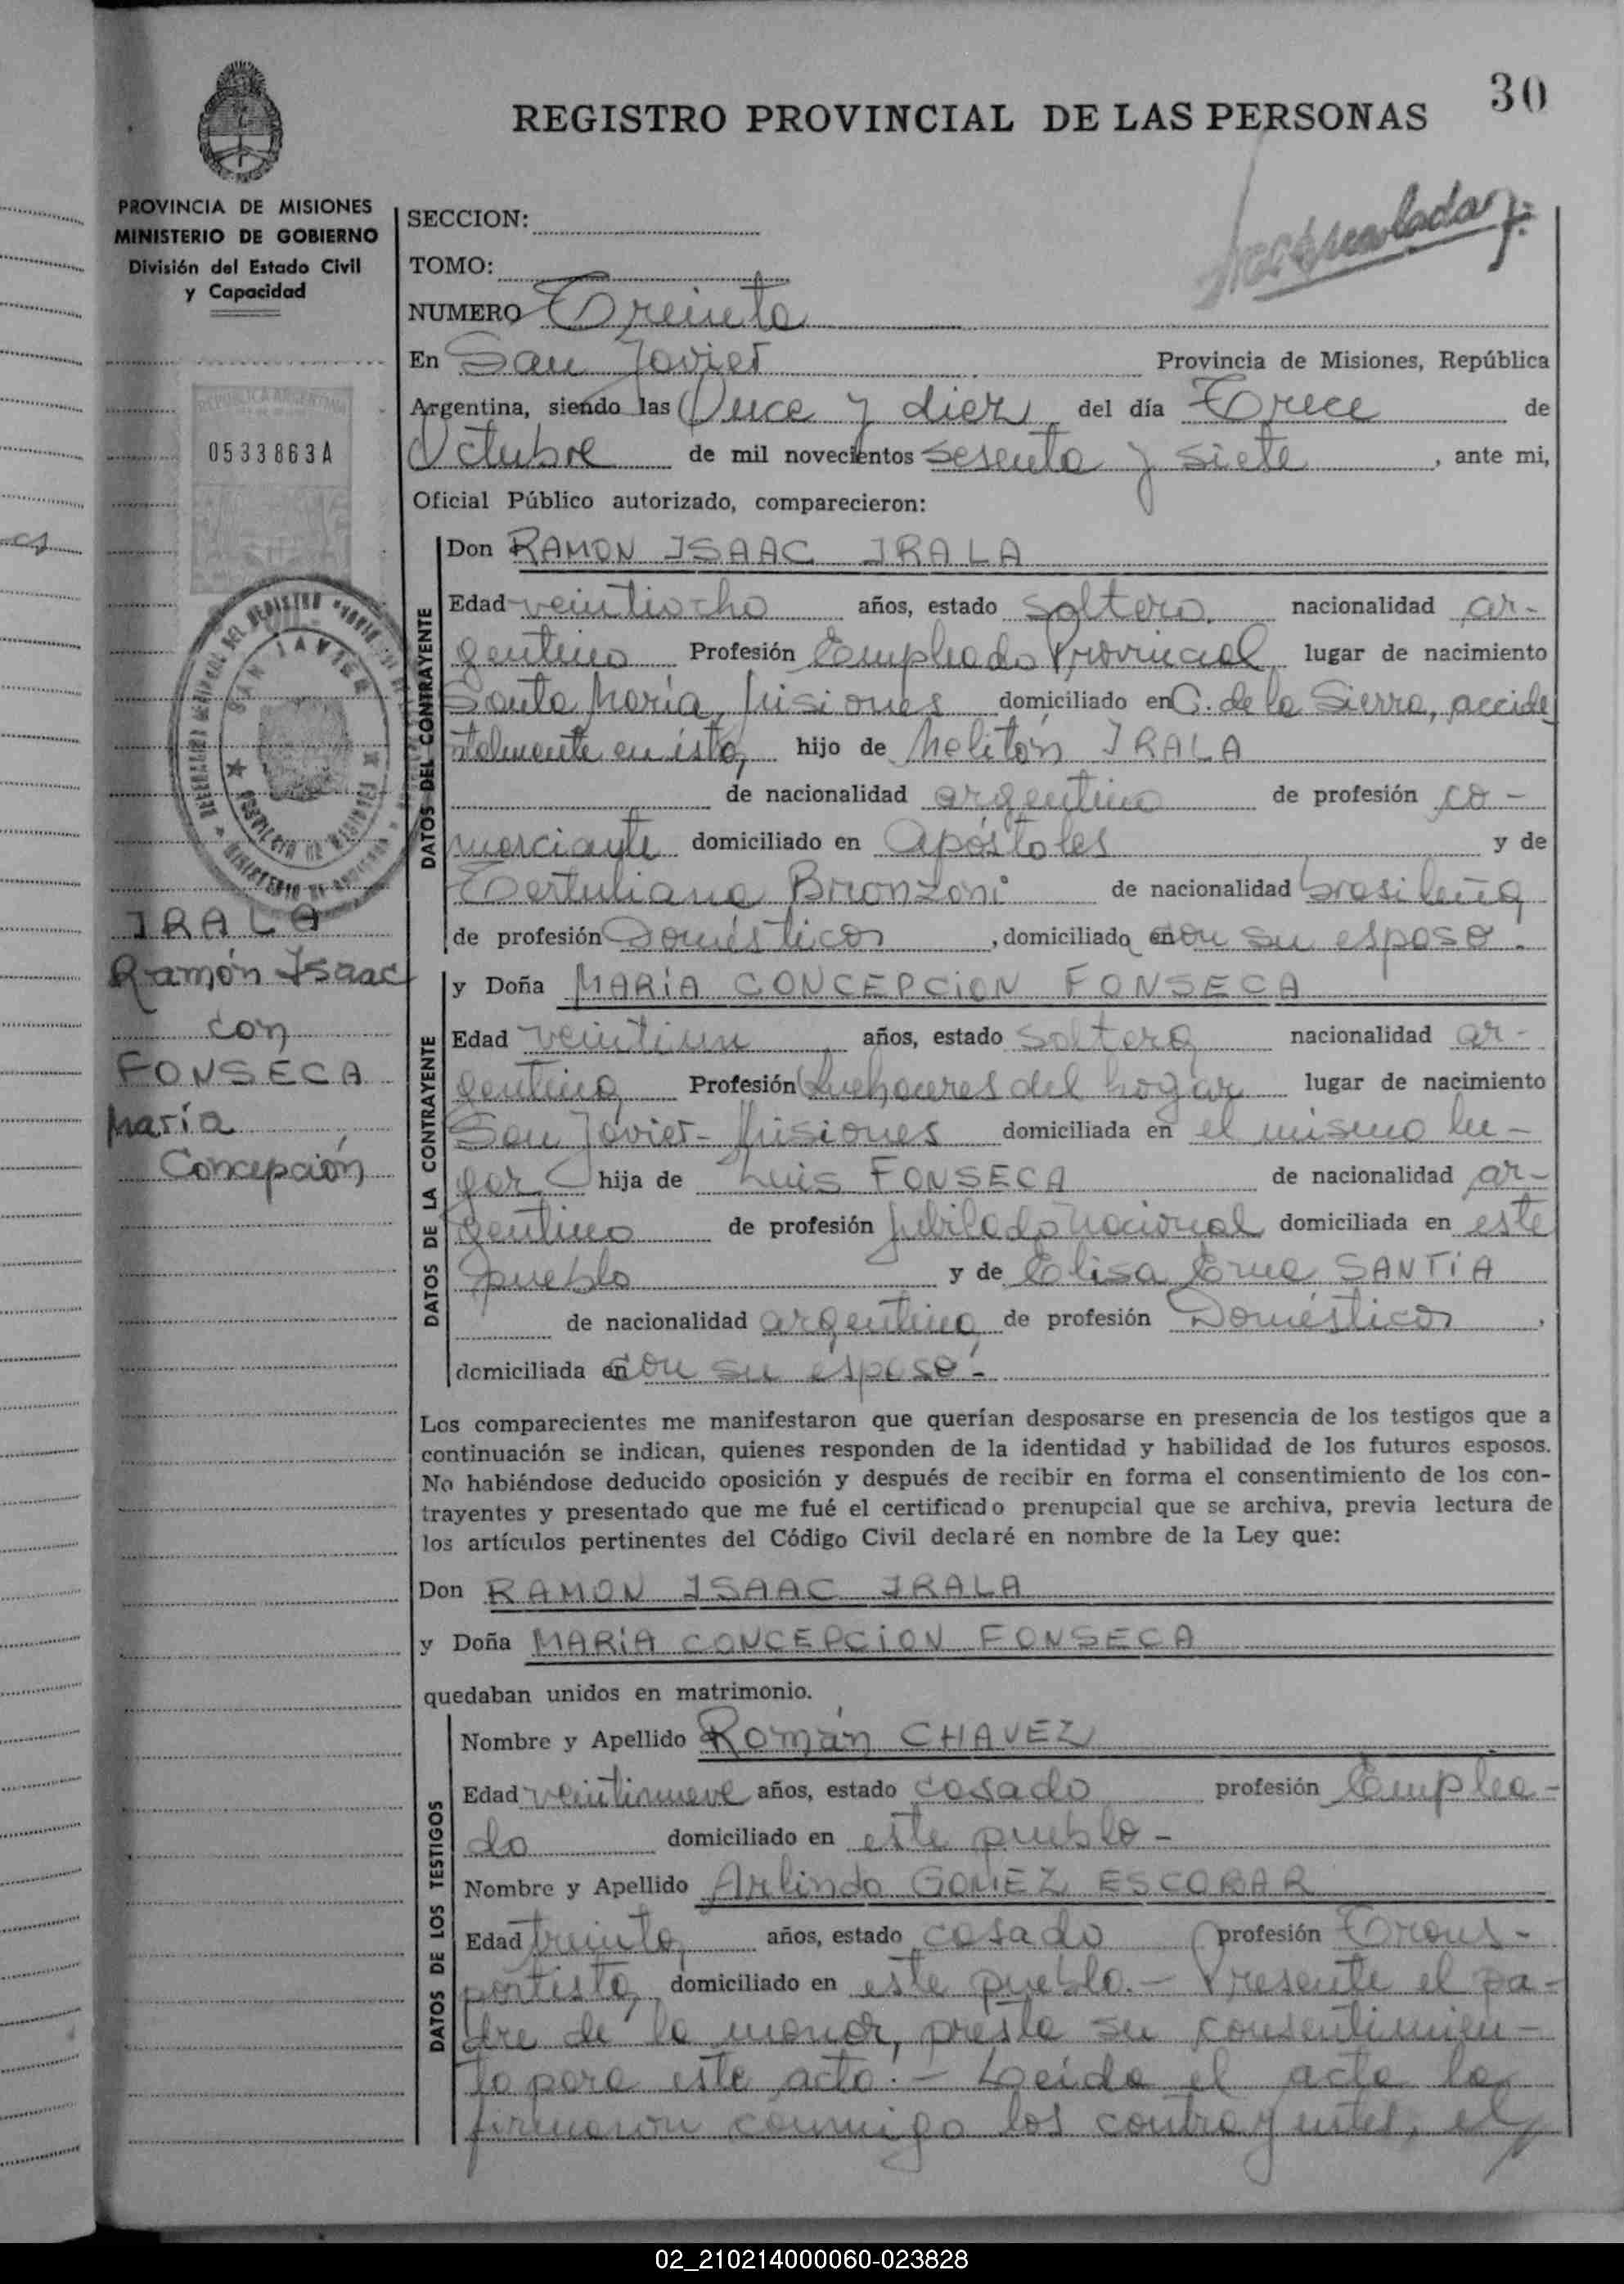 30
REGISTRO PROVINCIAL DE LAS PERSONAS
PROVINCIA DE MISIONES
MINISTERIO DE GOBIERNO
División del Estado Civil
y Capacidad
REPUBLICA ARGENTINA
0533863A
SAN JAVIER
IRALA
Ramón Isaac
con
FONSECA
María
Concepción
SECCION:
TOMO:
NUMERO Treinta
En San Javier Provincia de Misiones, República
Argentina, siendo las Once y diez del día Trece de
Octubre de mil novecientos sesenta y siete, ante mi,
Oficial Público autorizado, comparecieron:
DATOS DEL CONTRAYENTE
Don RAMON ISAAC IRALA
Edad veintiocho años, estado soltero, nacionalidad ar-
gentino Profesión Empleado Provincial lugar de nacimiento
Santa María, Misiones domiciliado en C. de la Sierra, accide
talmente en ésta, hijo de Melitón IRALA
de nacionalidad argentino de profesión co-
merciante domiciliado en Apóstoles y de
Tertuliana Bronzoni de nacionalidad brasileña
de profesión Domésticos, domiciliado en con su esposo.
DATOS DE LA CONTRAYENTE
y Doña MARÍA CONCEPCION FONSECA
Edad veintiun años, estado soltera nacionalidad ar-
gentina Profesión Quehaceres del hogar lugar de nacimiento
San Javier- Misiones domiciliada en el mismo lu-
gar, hija de Luis FONSECA de nacionalidad ar-
gentino de profesión Jubilado Nacional domiciliada en este
pueblo y de Elisa SANTÍA
de nacionalidad argentina de profesión Domésticos,
domiciliada en con su esposo.-
Los comparecientes me manifestaron que querían desposarse en presencia de los testigos que a
continuación se indican, quienes responden de la identidad y habilidad de los futuros esposos.
No habiéndose deducido oposición y después de recibir en forma el consentimiento de los con-
trayentes y presentado que me fué el certificado prenupcial que se archiva, previa lectura de
los artículos pertinentes del Código Civil declaré en nombre de la Ley que:
Don RAMON ISAAC IRALA
y Doña MARÍA CONCEPCION FONSECA
quedaban unidos en matrimonio.
DATOS DE LOS TESTIGOS
Nombre y Apellido Román CHAVEZ
Edad veintinueve años, estado casado profesión Emplea-
do domiciliado en este pueblo-
Nombre y Apellido Arlindo GOMEZ ESCOBAR
Edad treinta años, estado casado profesión Trans-
portista, domiciliado en este pueblo.- Presente el pa-
dre de la menor, presta su consentimien-
to para este acto.- Leída el acta la
firmaron conmigo los contrayentes, el
02_210214000060-023828